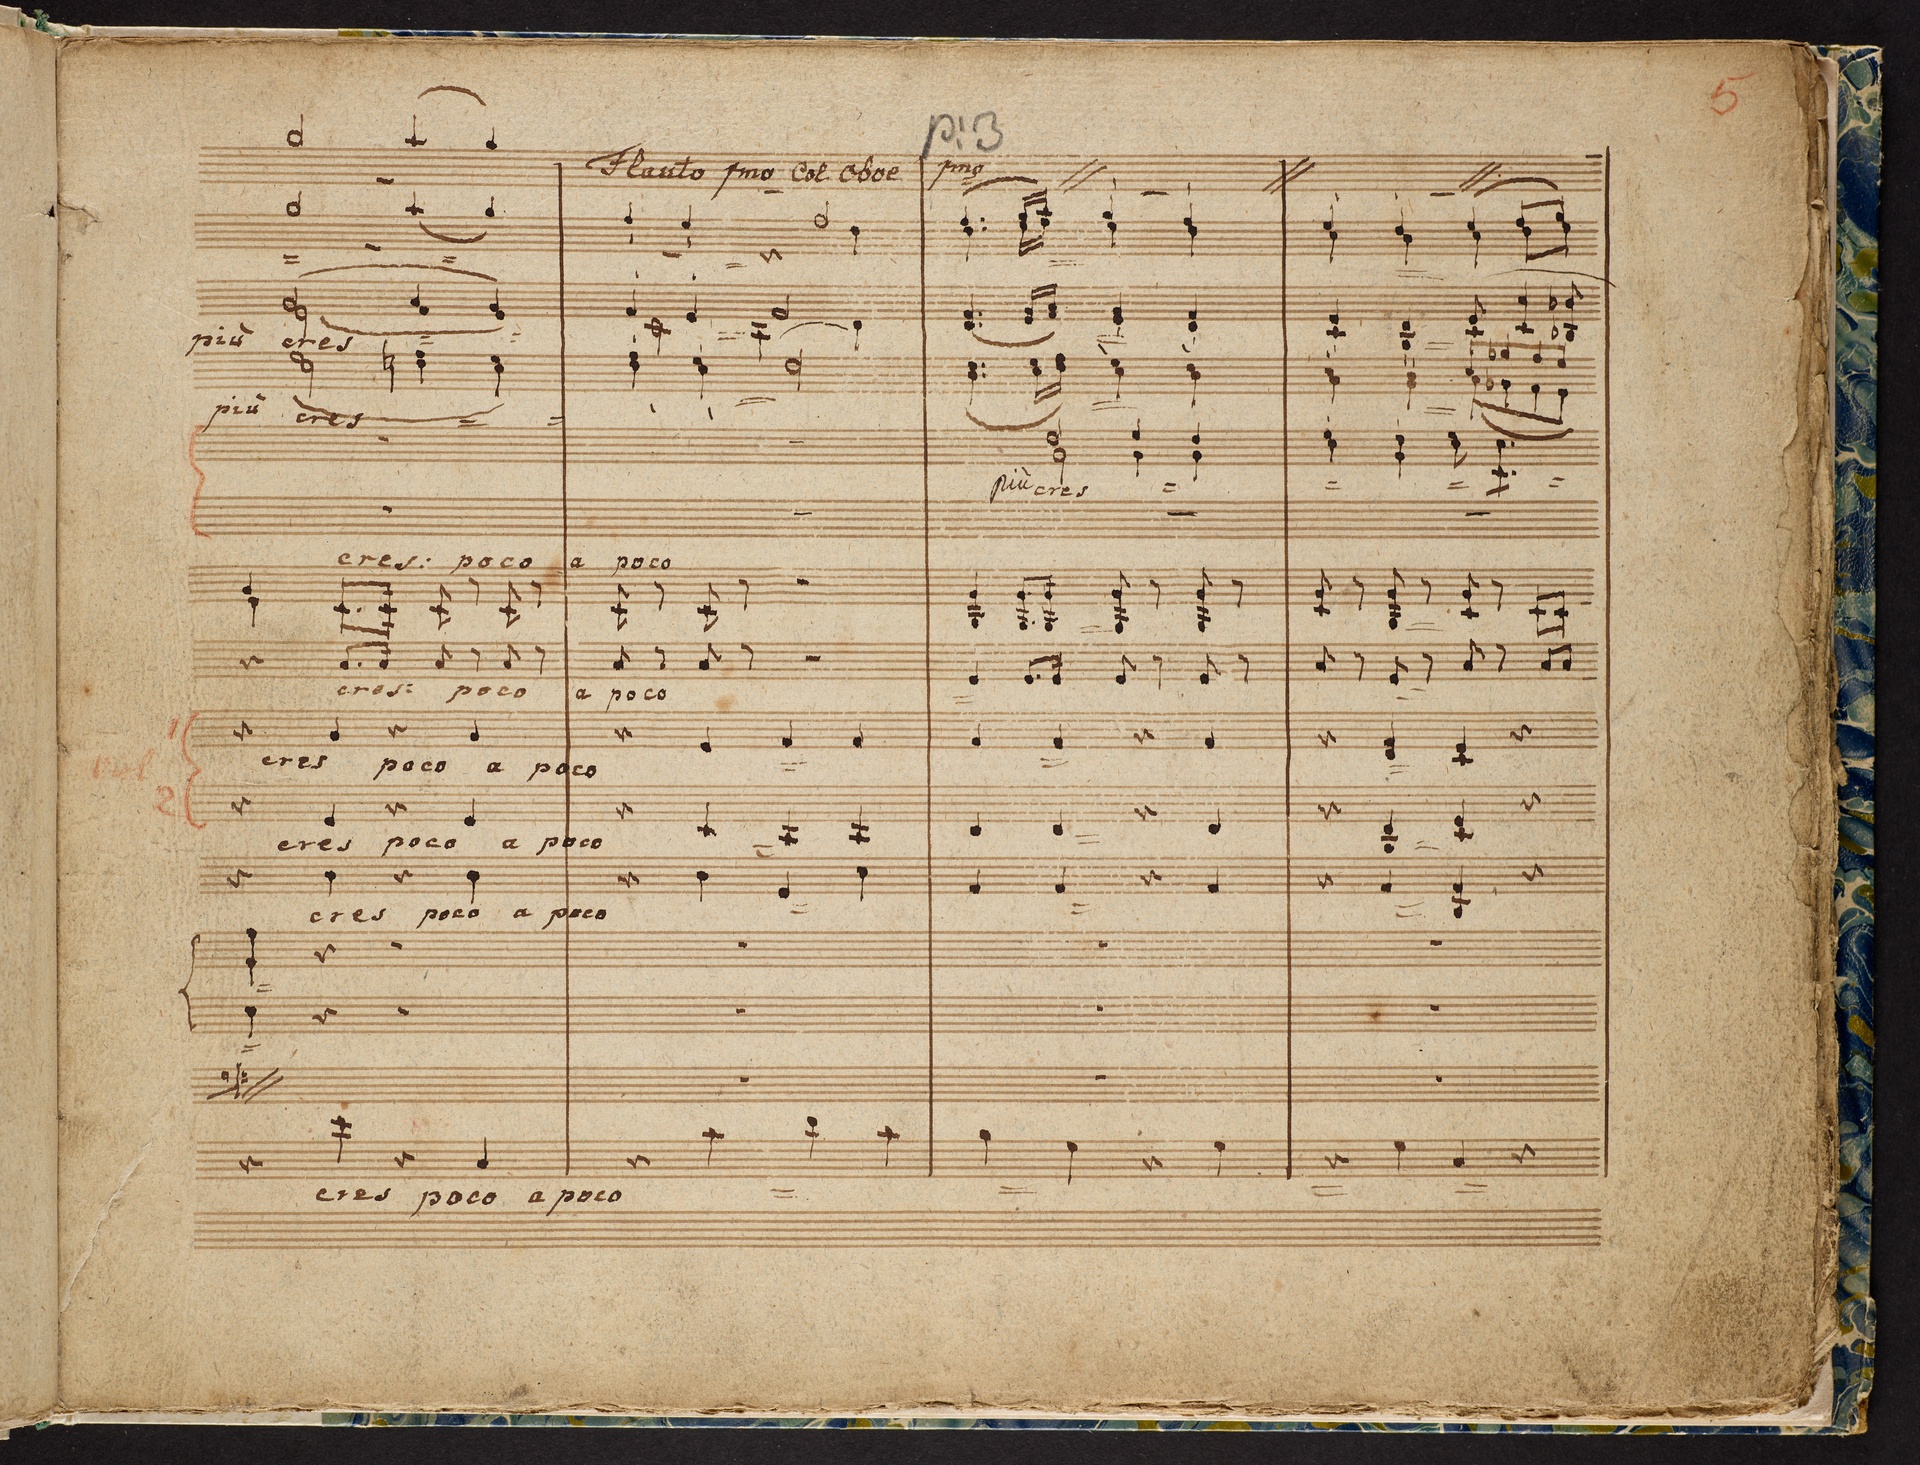 5
p: 3
Flauto pmo Col Oboe pmo
più cres
più cres
più cres
cres: poco a poco
cres: poco a poco
1
cres poco a poco
2
cres poco a poco
cres poco a poco
cres poco a poco